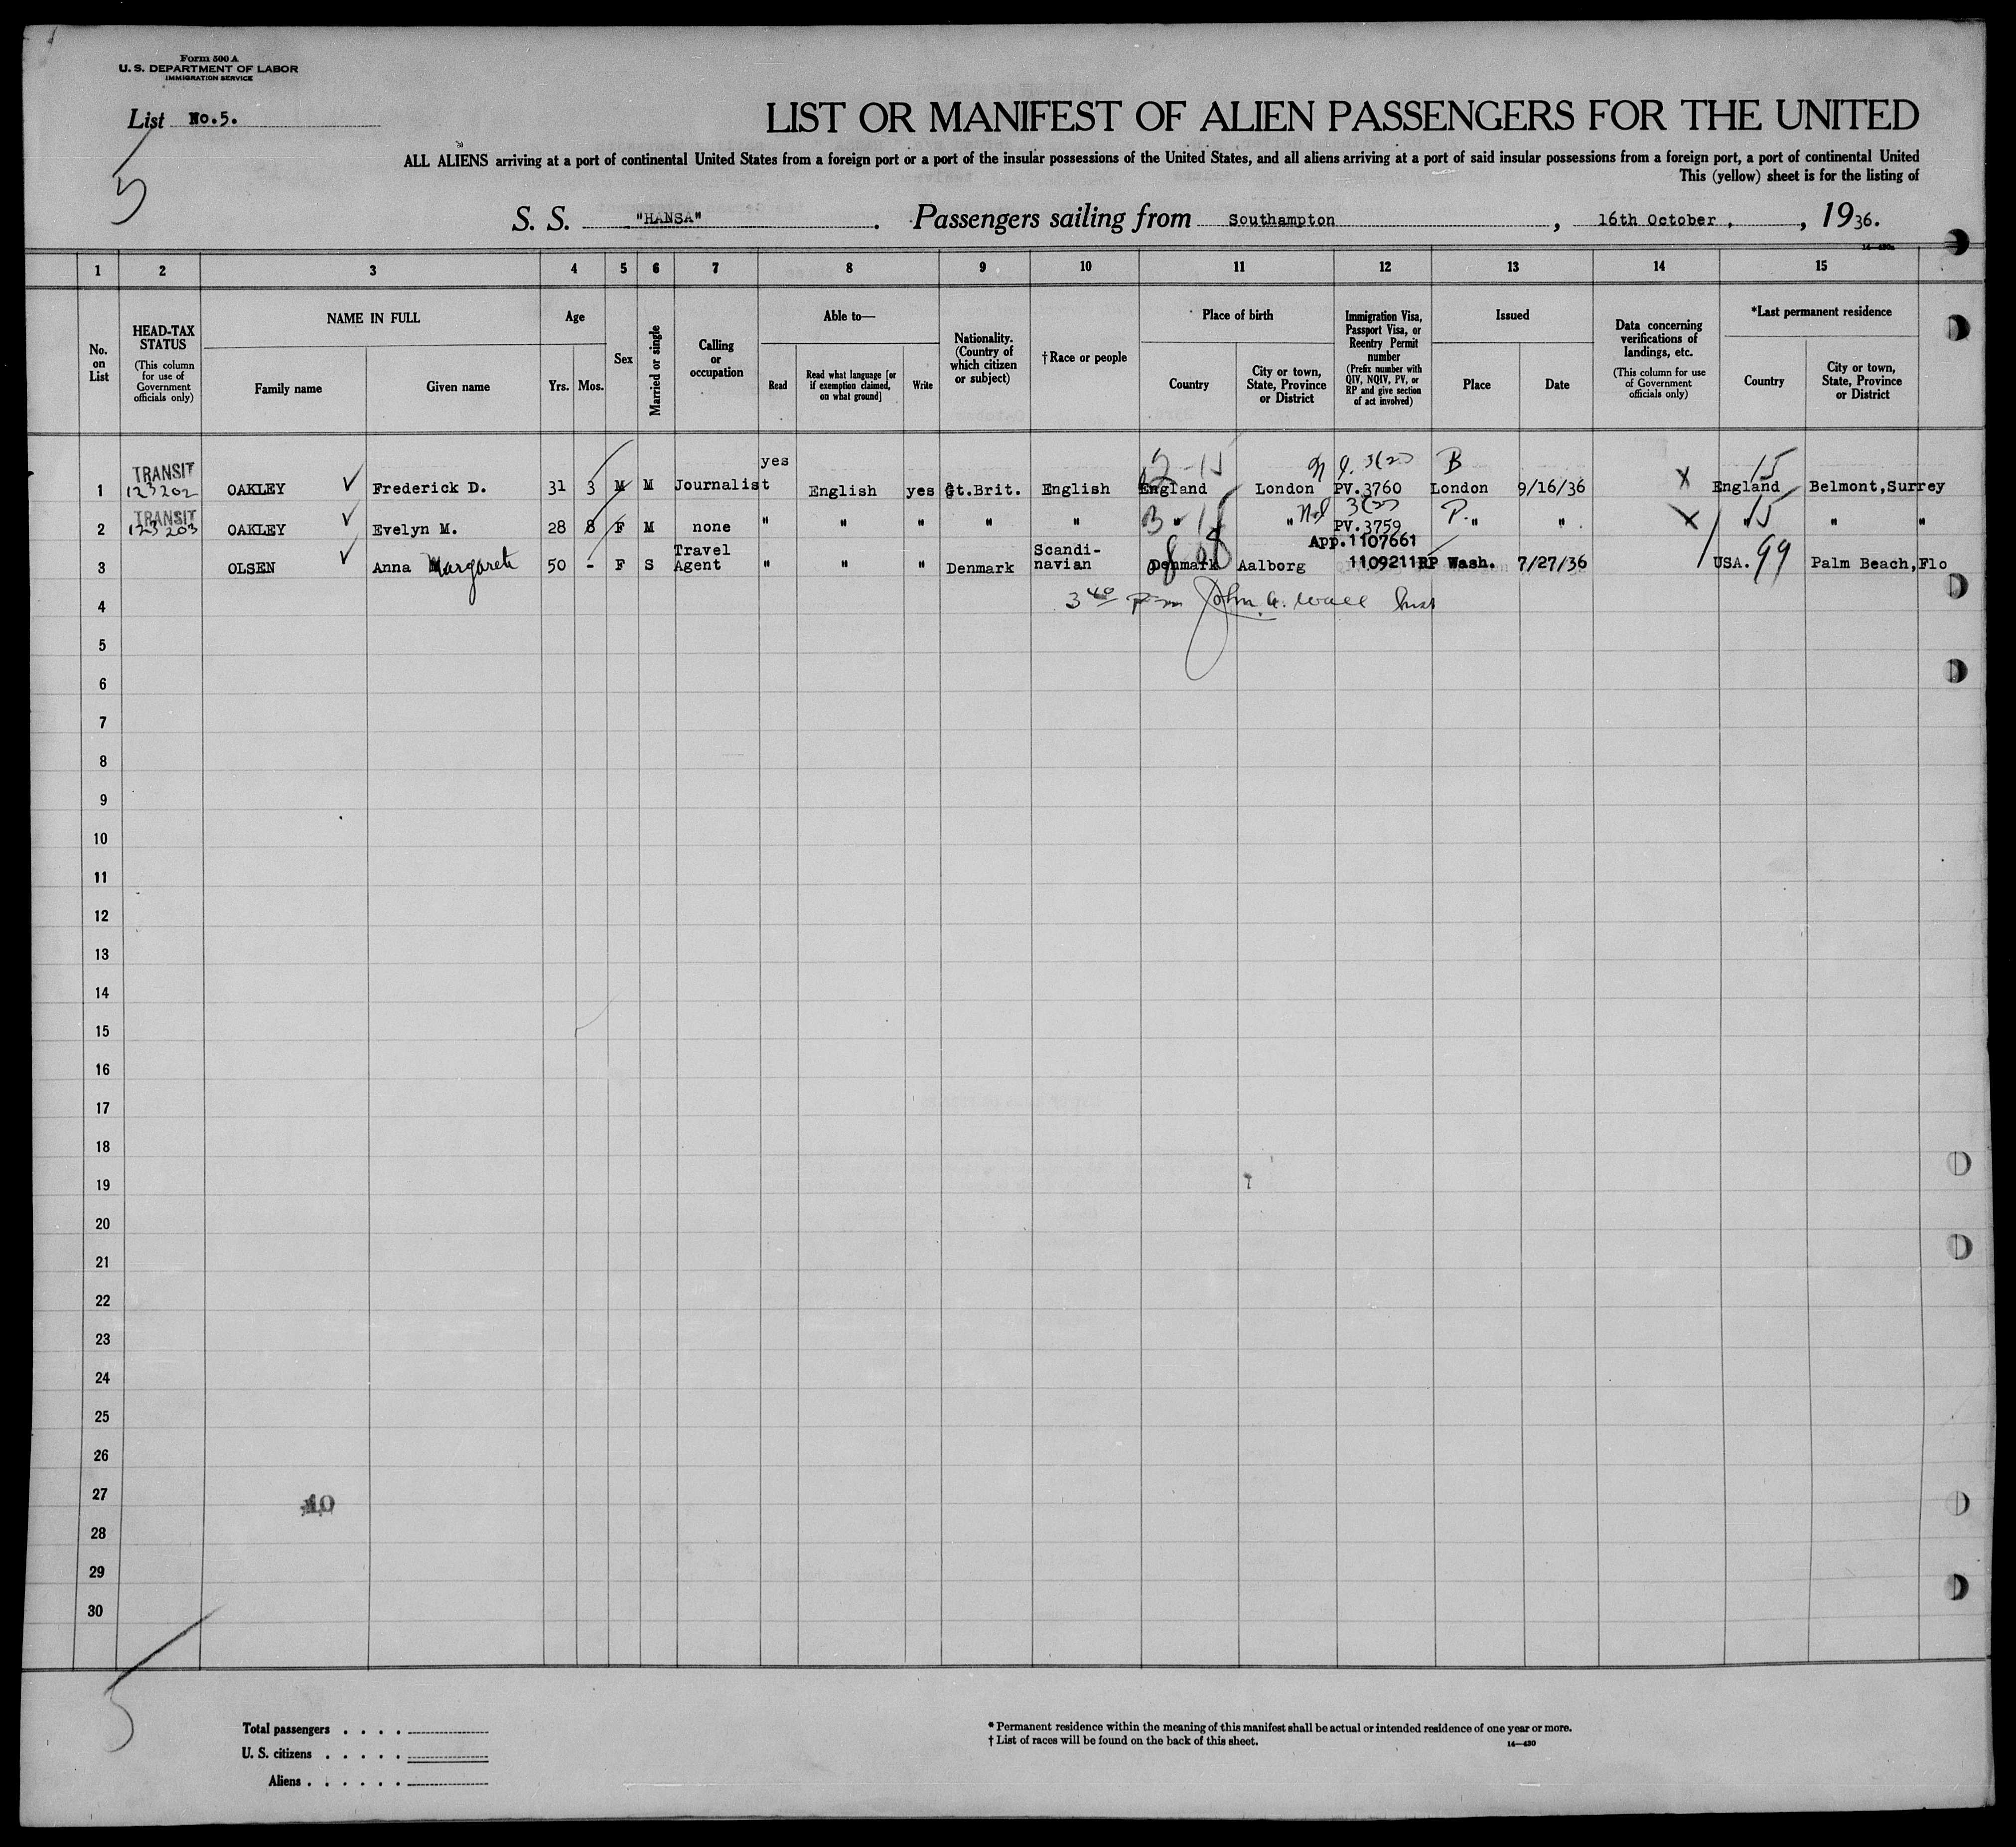 Form 500 A
U. S. DEPARTMENT OF LABOR
IMMIGRATION SERVICE
List No.5.
5
LIST OR MANIFEST OF ALIEN PASSENGERS FOR THE UNITED
ALL ALIENS arriving at a port of continental United States from a foreign port or a port of the insular possessions of the United States, and all aliens arriving at a port of said insular possessions from a foreign port, a port of continental United
This (yellow) sheet is for the listing of
S. S. "HANSA". Passengers sailing from Southampton, 16th October, , 1936.
1 2 3 4 5 6 7 8 9 10 11 12 13 14 15
No. on List
HEAD-TAX STATUS
(This column for use of Government officials only)
NAME IN FULL
Family name
Given name
Age
Yrs. Mos.
Sex
Married or single
Calling or occupation
Able to—
Read
Read what language [or if exemption claimed, on what ground]
Write
Nationality. (Country of which citizen or subject)
†Race or people
Place of birth
Country
City or town, State, Province or District
Immigration Visa, Passport Visa, or Reentry Permit number
(Prefix number with QIV, NQIV, PV, or RP and give section of act involved)
Issued
Place
Date
Data concerning verifications of landings, etc.
(This column for use of Government officials only)
*Last permanent residence
Country
City or town, State, Province or District
3(2) B 15
1 TRANSIT 123202 OAKLEY Frederick D. 31 3 M M Journalist yes English yes Gt.Brit. English England London PV.3760 London 9/16/36 X England Belmont,Surrey
3(2) P. 15
2 TRANSIT 123203 OAKLEY Evelyn M. 28 8 F M none " " " " " " " PV.3759 " " X " " "
App.1107661
3 OLSEN Anna Margarete 50 - F S Travel Agent " " " Denmark Scandinavian Denmark Aalborg 1109211RP Wash. 7/27/36 USA. 99 Palm Beach,Flo
4 3 40 pm John A. Wall
5
6
7
8
9
10
11
12
13
14
15
16
17
18
19
20
21
22
23
24
25
26
27
40
28
29
30
5
Total passengers . . . .
U. S. citizens . . . . .
Aliens . . . . . .
* Permanent residence within the meaning of this manifest shall be actual or intended residence of one year or more.
† List of races will be found on the back of this sheet.
14—430